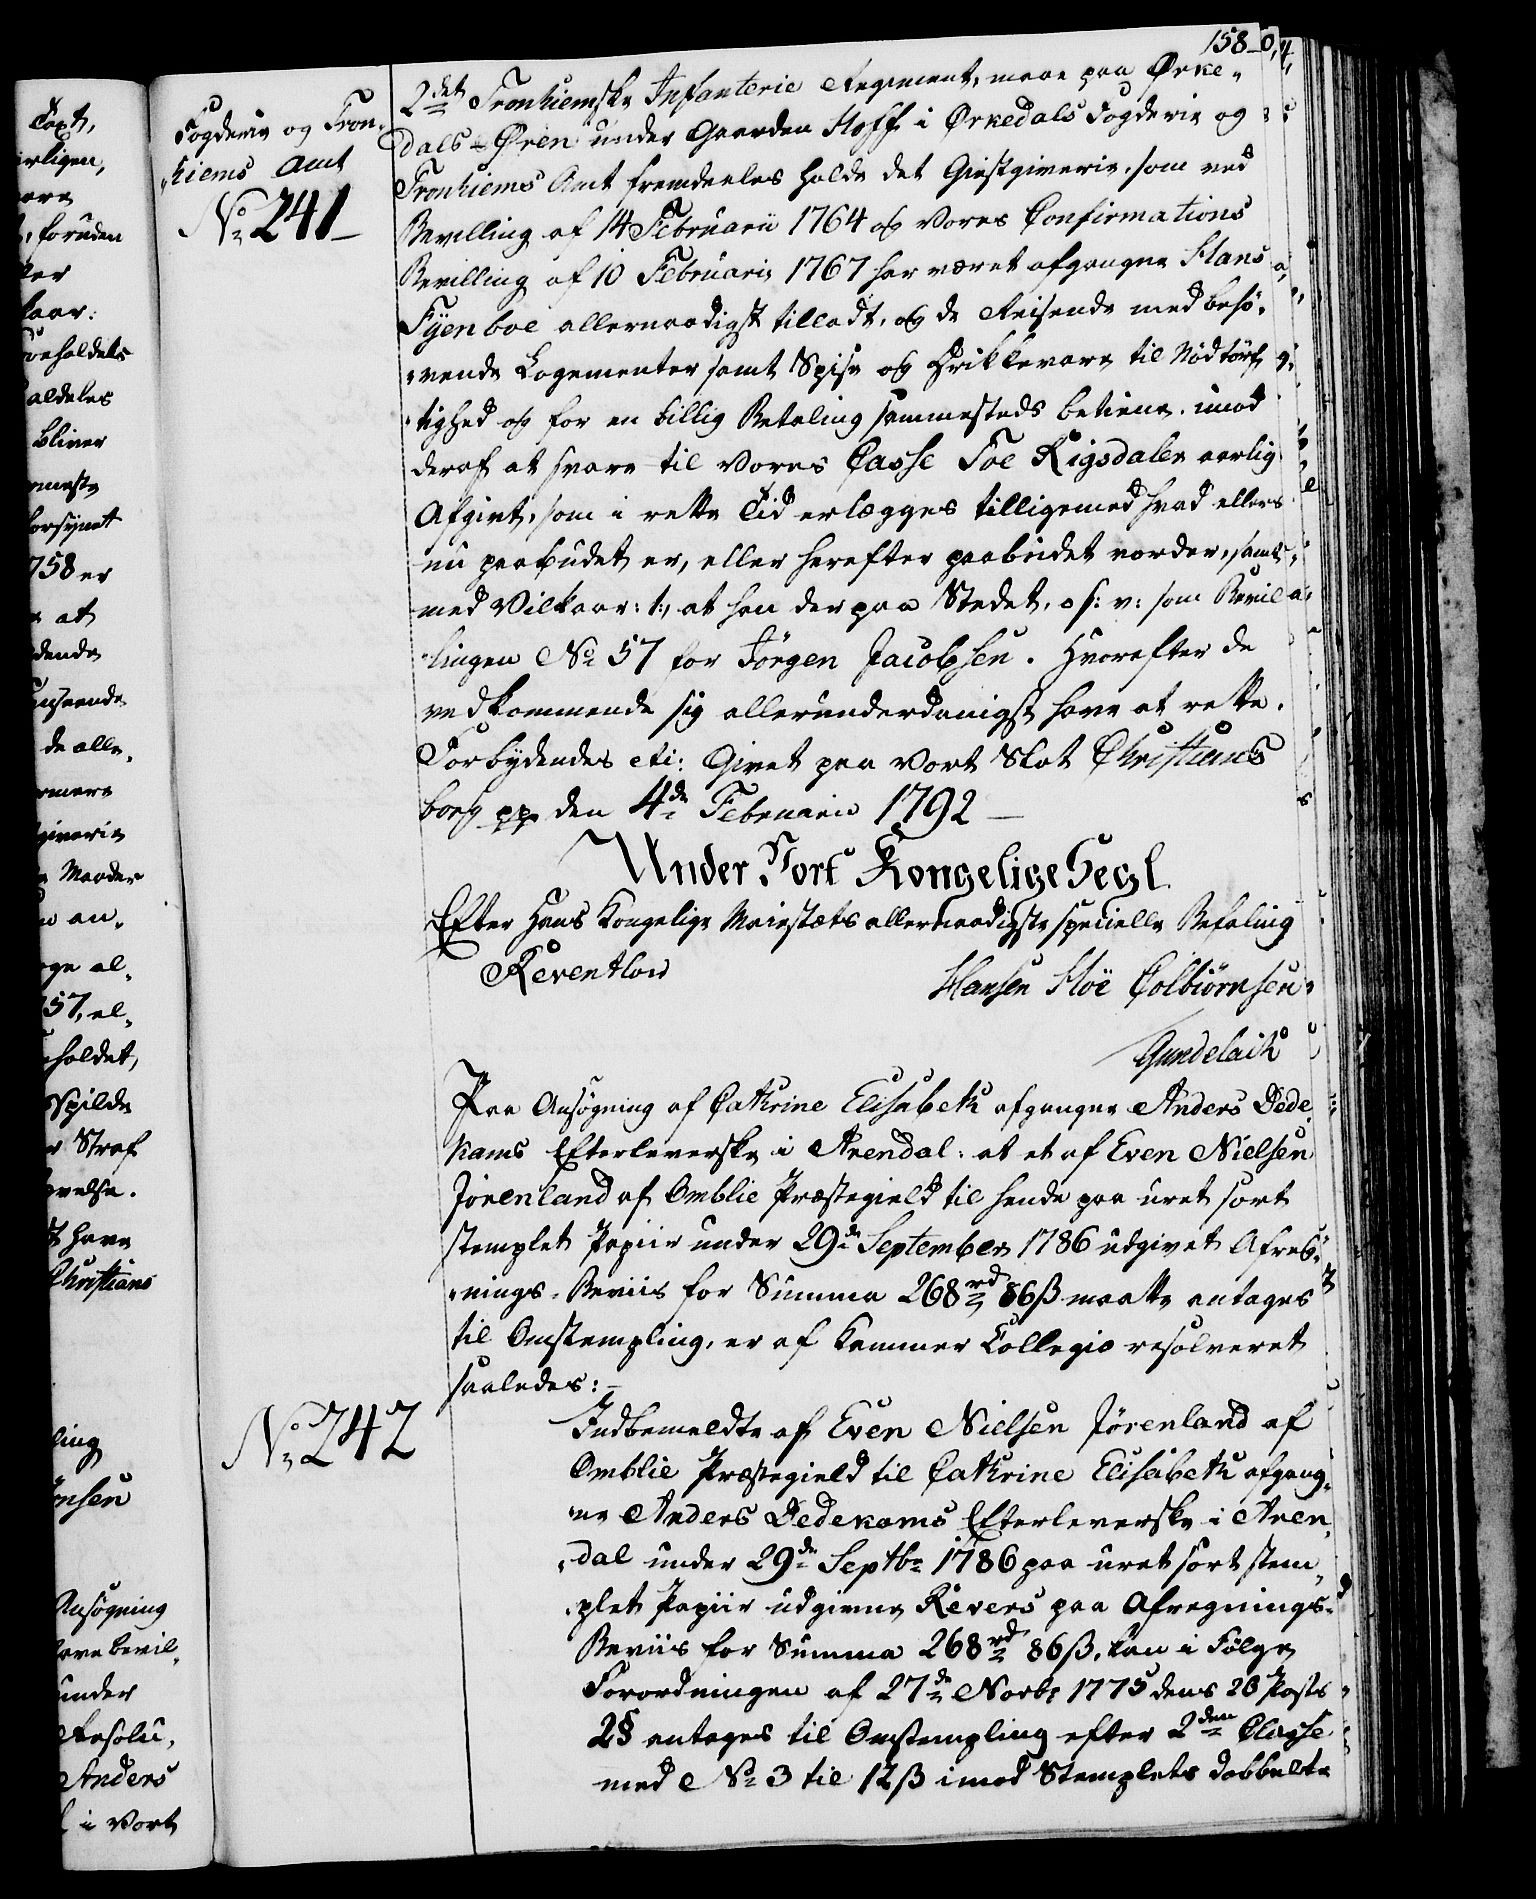 158
Fogderie og Tron-
hiems Amt
No 241
2det Tronhiemske Infanterie Regiment, maae paa Ørke-
dals-Øren under Gaarden Hoff i Ørkedals Fogderie og
Tronhiems Amt fremdeeles holde det Giestgiverie, som ved
Bevilling af 14 Februarii 1764 og Vores Confirmations
Bevilling af 10 Februarii 1767 har været afgangne Hans
Fyenboe allernaadigst tilladt, og de Reisende med behø-
vende Logementer samt Spise og Drikkevare til Nødtørf-
tighed og for en billig Betaling sammesteds betiene, imod
deraf at svare til Vores Casse Toe Rigsdaler aarlig
Afgivt, som i rette Tid erlægges tilligemed hvad ellers
nu paabudet er, eller herefter paabudet vorder, samt
med Vilkaar: 1, at han der paa Stedet, o s: v: som Bevil-
lingen No 57 for Jørgen Jacobsen. Hvorefter de
vedkommende sig allerunderdanigst have at rette.
Forbydendes etc: Givet paa Vort Slot Christians
borg pp den 4de Februarii 1792
Under Vort Kongelige Segl.
Efter Hans Kongelige Maiestæts allernaadigste specielle Befaling
Reventlow
Hansen Hoë Colbiørnsen
Gundelach
Paa Ansøgning af Cathrine Elisabeth afgangne Anders Dede-
kams Efterleverske i Arendal: at et af Even Nielsen
Jørenland af Omblie Præstegield til hende paa uret sort
stemplet Papiir under 29de September 1786 udgivet Afreg-
nings-Beviis for Summa 268 rd 86 ß maatte antages
til Omstempling, er af Kammer Collegio resolveret
saaledes:
No 242
Indbemeldte af Even Nielsen Jørenland af
Omblie Præstegield til Cathrine Elisabeth afgang-
ne Anders Dedekams Efterleverske i Aren-
dal under 29de Septbr 1786 paa uret sort stem-
plet Papiir udgivne Revers paa Afregnings-
Beviis for Summa 268 rd 86 ß, kan i Følge
Forordningen af 27de Novbr 1775 dens 20 Posts
2 § antages til Omstempling efter 2den Classe
med No 3 til 12 ß imod Stemplets dobbelte